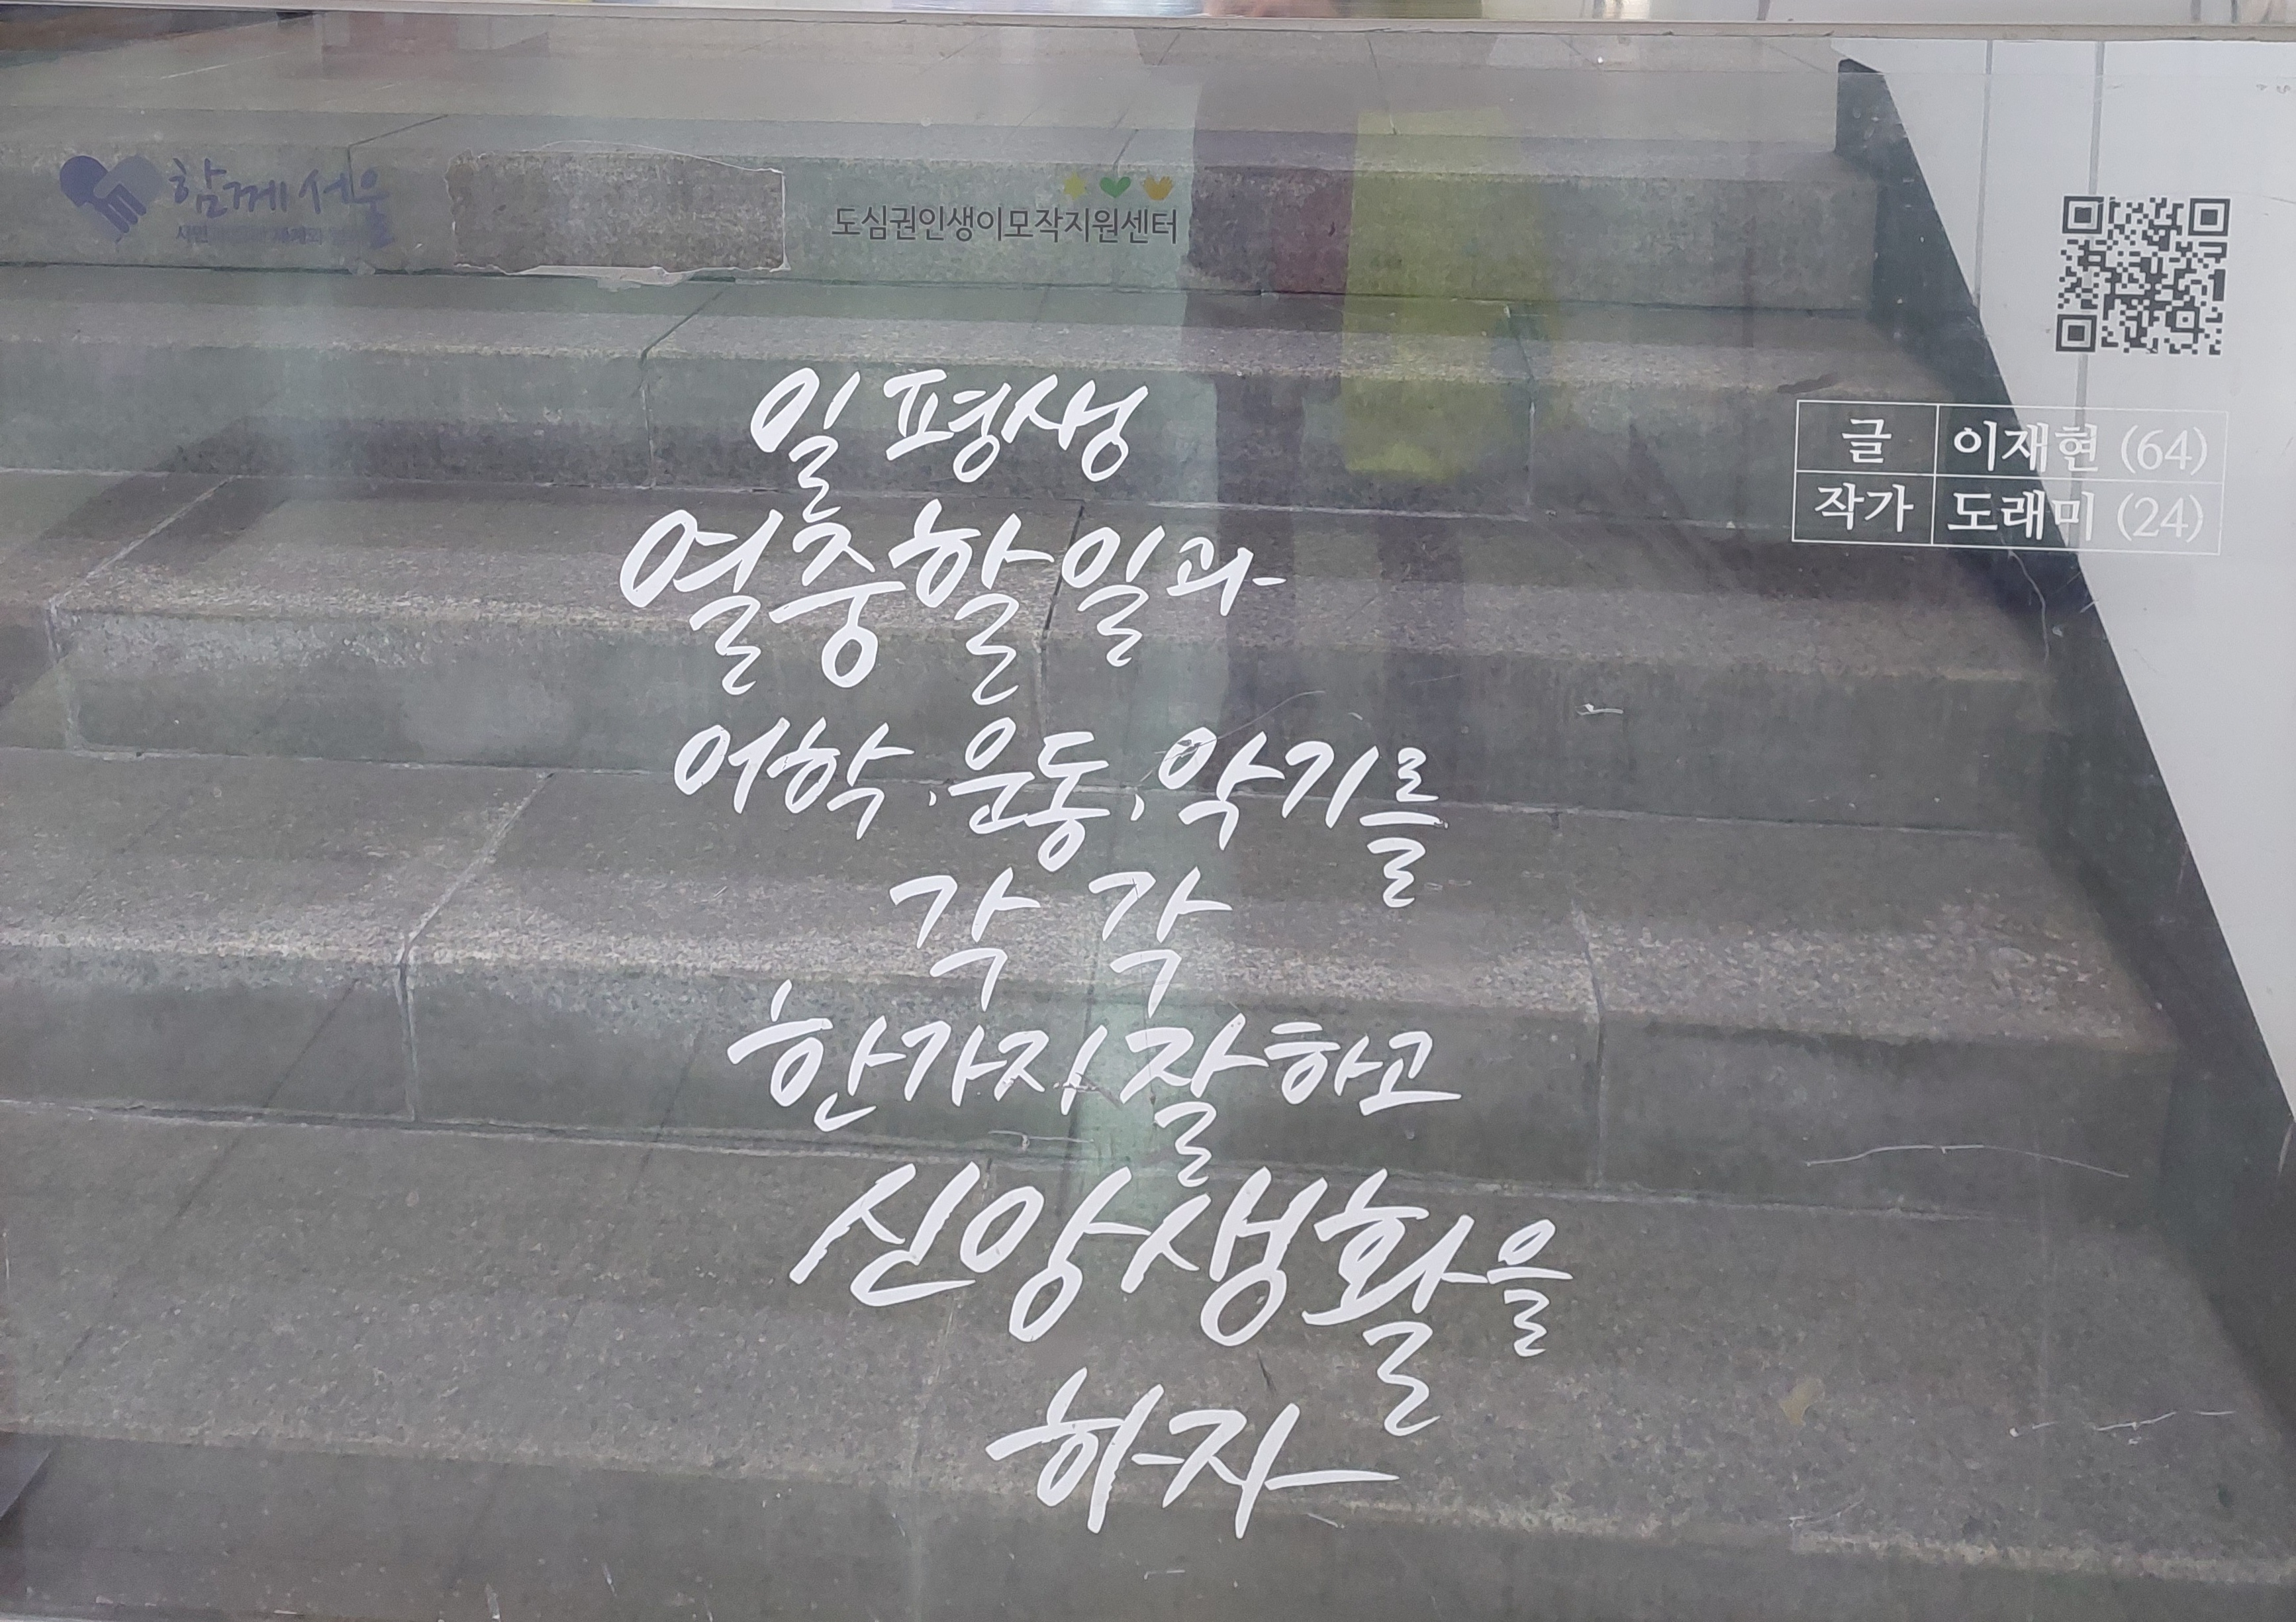 함께서울
도심권인생이모작지원센터
글 이재현 (64)
작가 도래미 (24)
일평생
열중할 일과
어학, 운동, 악기를
각 각
한가지 잘하고
신앙생활을
하자